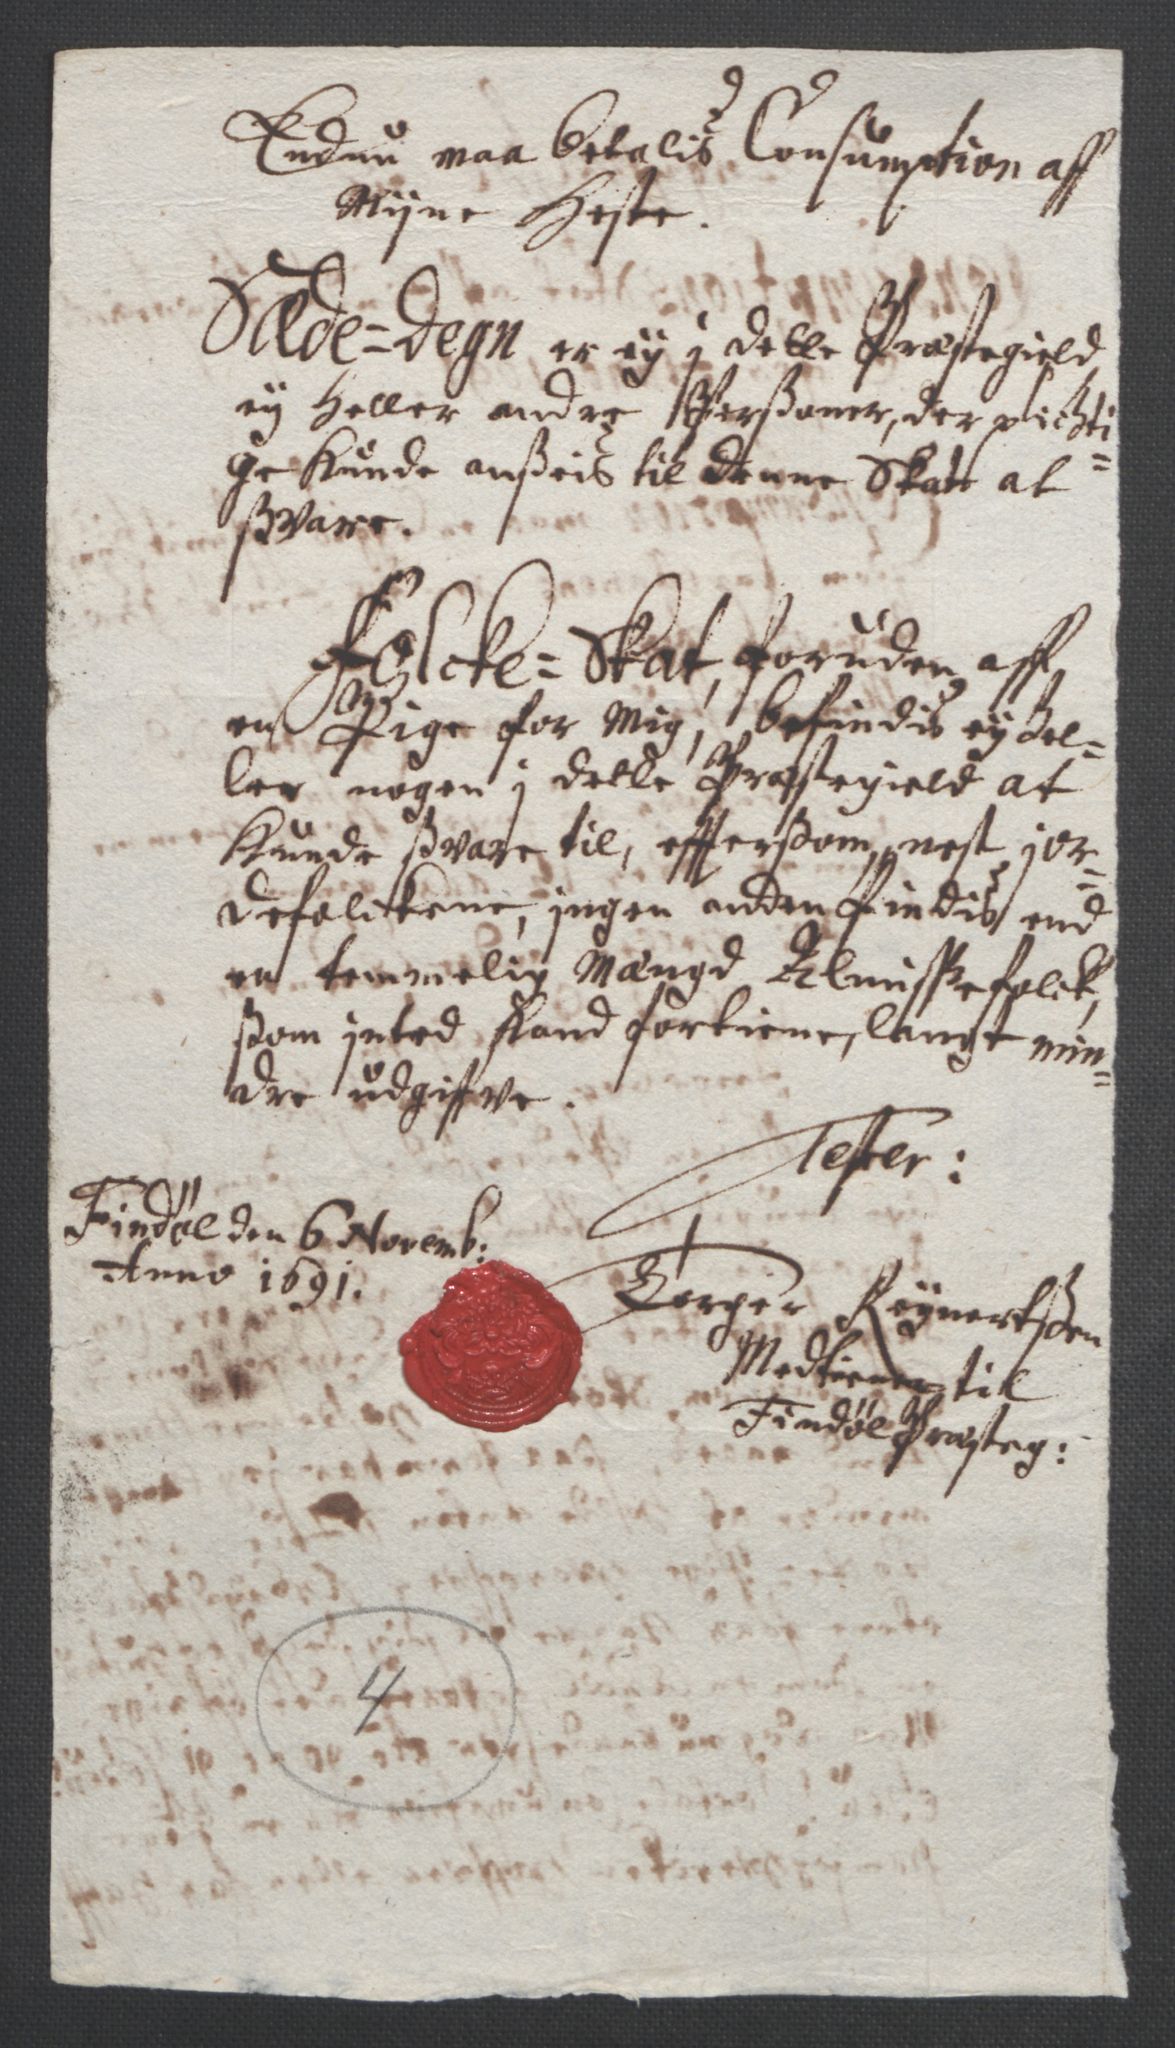 Endnu maa betalis Consumption aff
Mijne Heste.
Sæde-Degn er ey j dette Præstegield
ey heller andre Perßoner, der plichti=
ge kunde anßeis til denne Skatt at
ßvare.
Folcke-Skat, foruden aff
en Pige for Mig, befindis ey hel=
ler nogen j dette Præstegield at
kunde ßvare til, effterßom, nest jor=
defolckene, jngen anden findis end
en temmelig Mængd Almißefolck,
ßom jnted kand fortiene, langt min=
dre udgiffve.
Tester:
Findøl den 6 Novemb:
Anno 1691.
Torger Reÿnertßen
Medtiener til
Findøl Præsteg:
4